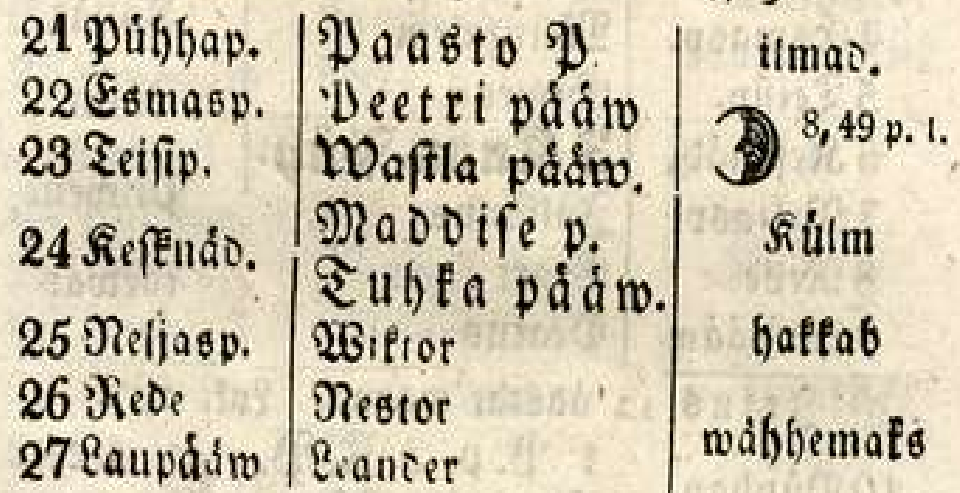 21 Pühhap. Paasto P. ilmad.
22 Esmasp. Peetri pääw
8, 49 p. l.
23 Teisip. Wastla pääw.
24 Kesknäd. Maddise p. Külm
Tuhka pääw.
25 Neljasp. Wiktor hakkab
26 Rede Nestor
27 Laupääw Leander wähhemaks